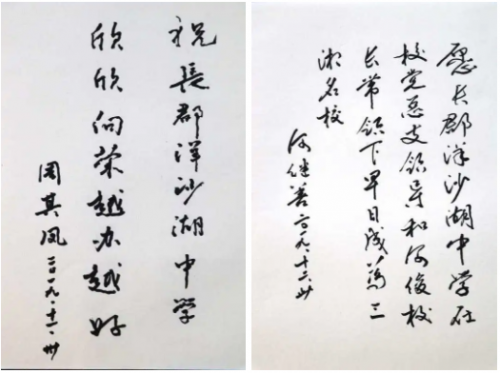 祝長郡洋沙湖中学
欣欣向荣越办越好
周其凤 二〇一九·十一·卅
愿长郡洋沙湖中学在
校党总支领导和何俊校
长带领下早日成为三
湘名校
何继善